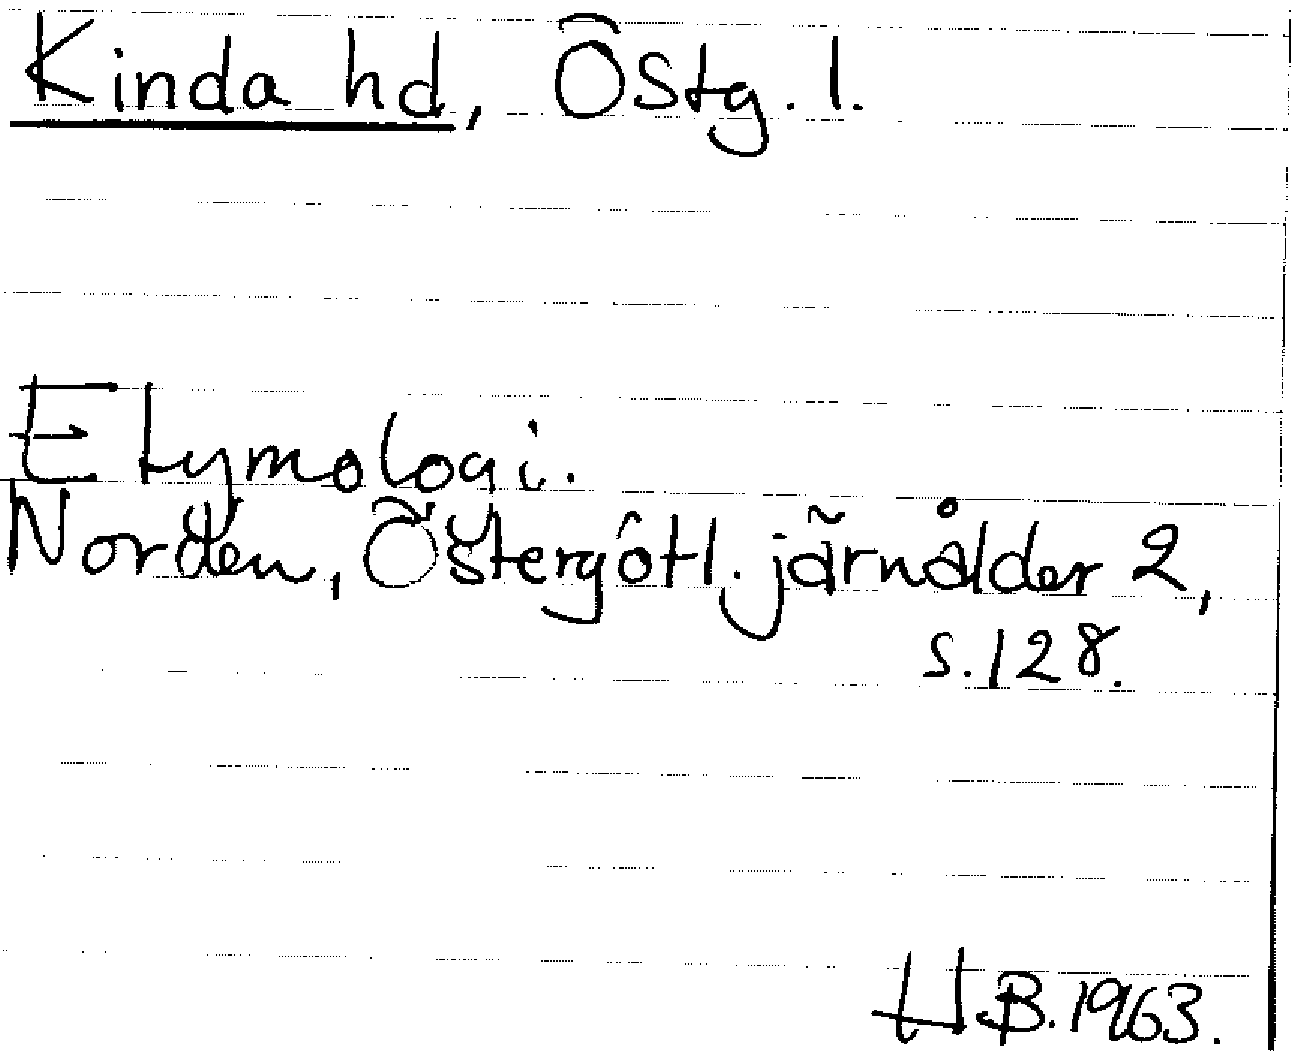 Kinda hd, Östg. l.
Etymologi.
Nordén, Östergötl. järnålder 2,
s. 128.
H.B. 1963.